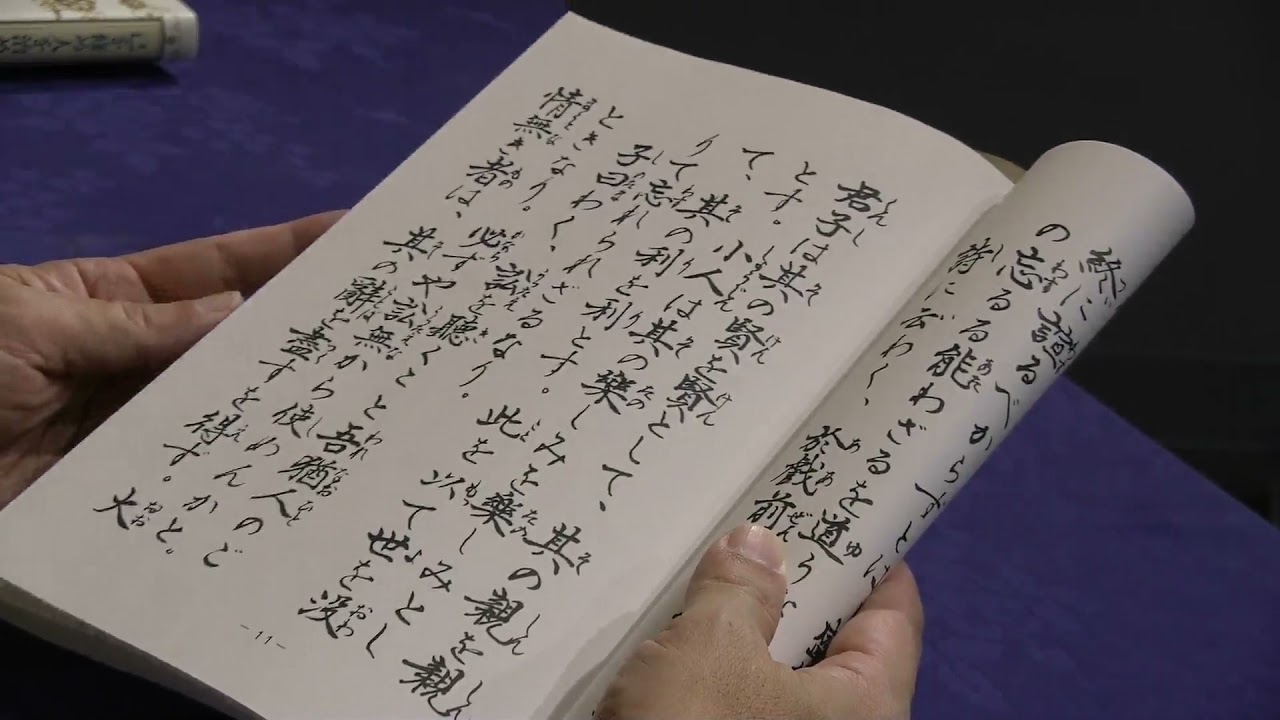 終に諠るべからずとは、
の忘るる能わざるを道う
詩に云わく、於戯前
君子は其の賢を賢として、其の親を親
とす。小人は其の樂しみを樂しみとし
て、其の利を利とす。此を以て世を没
りて忘られざるなり。
子曰わく、訟を聽くこと吾猶人のご
ときなり。必ずや訟無から使めんかと。
情無き者は、其の辭を盡すを得ず。大
-11-